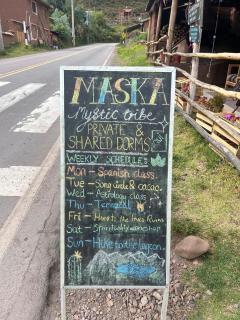 MASKA
Mystic tribe
PRIVATE &
SHARED DORMS
WEEKLY SCHEDULES
Mon - Spanish class.
Tue - Song circle & cacao.
Wed - Astrology class
Thu - Temazcal
Fri - to the Inka Ruins
Sat - Spirituality workshop
Sun - Hike to the lagoon.